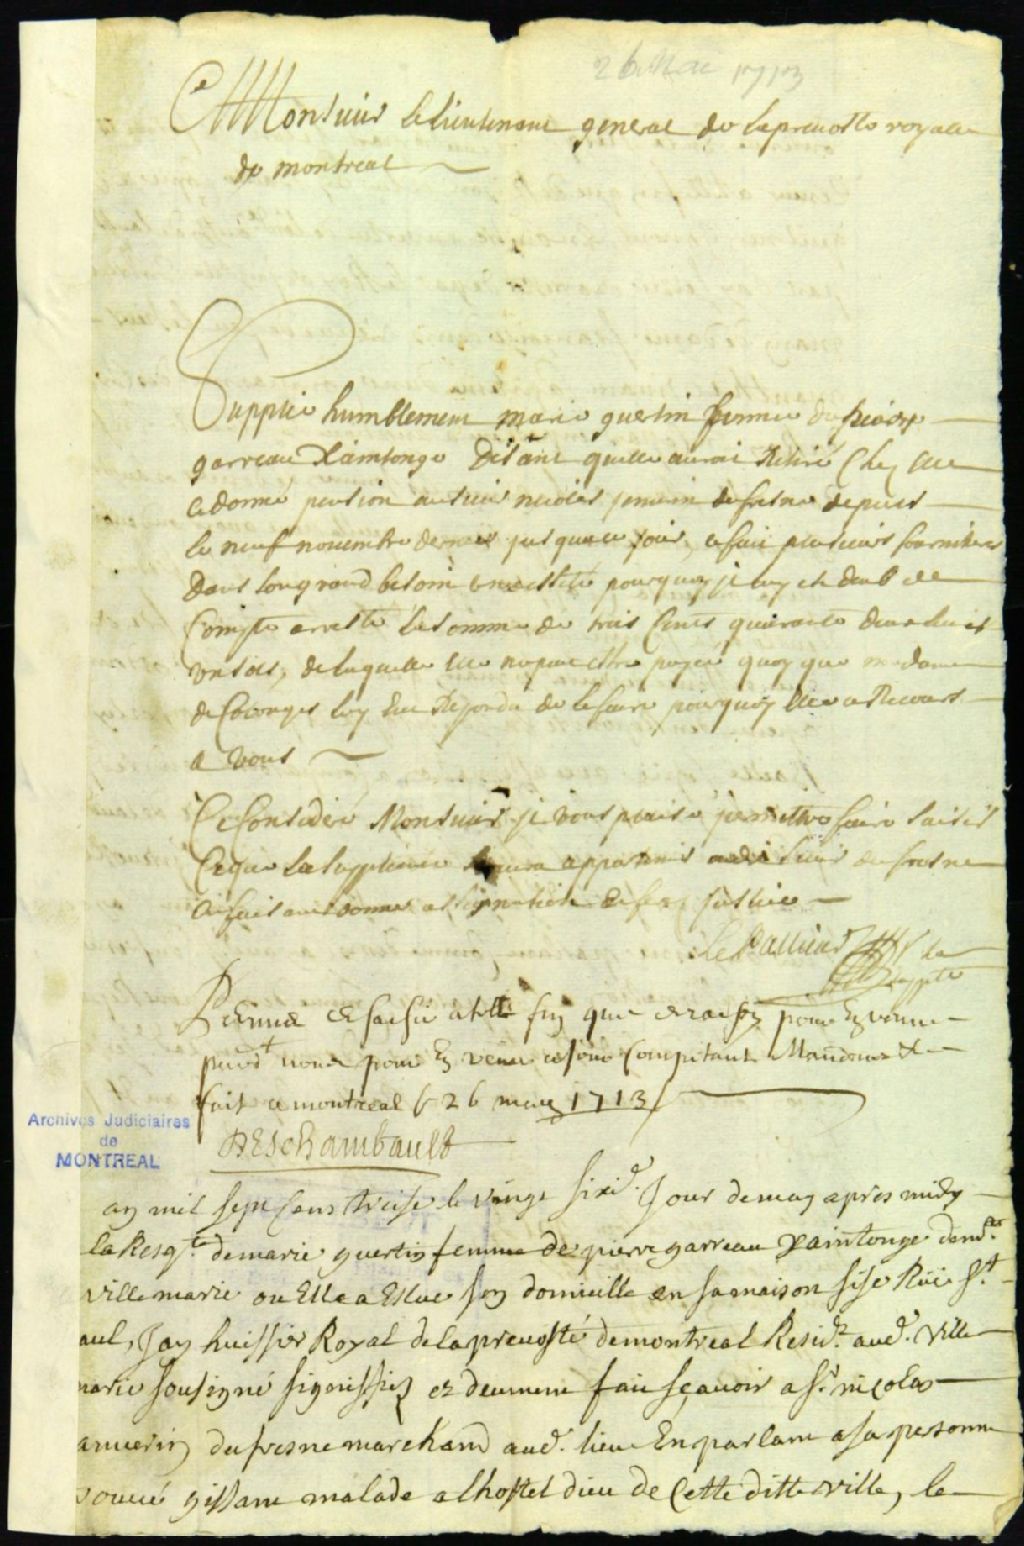 26 Mai 1713
A Monsieur le lieutenant general de la prevosté royalle
de montreal
Supplie humblement marie guertin femme de pierre
garreau Xaintonge Disant quelle auroit Retiré Chez elle
et donné pension au sieur nicolas janurin dufresne depuis
le neuf novembre dernier jusquà ce jour, et fait plusieurs fournitures
Dans son grand besoin et necessité pourquoy il luy est deub de
Compte arresté la somme de trois Cents quarante deux livres
un sols, de laquelle elle ne peut estre payée quoy que madame
de Couonges luy Eut Repondu de le faire pourquoy elle a Recours
a Vous
Ce Consideré Monsieur il vous plaise permettre faire saisir
Ce que la suppliante aura appartenir audit sieur dufresne
et ferez justice
Le Pallieur
Permis de saisir à telle fin que de raison pour En venir
pard.t nous pour En venir a jour Competant Mandons &
fait a montreal le 26 may 1713
DESchambault
Archives Judiciaires
de
MONTREAL
an mil sept Cens treise le vingt sixie. Jour de may apres midy
la Resq.te de marie guertin femme de pierre garreau Xaintonge dem.te
villemarie ou Elle a Eslue son domicille en sa maison sise Rüe S.t
aul, Jay huissier Royal de la prevosté de montreal Resid.t aud. Ville
marie sousigné signiffié et deument fait sçavoir a S.r nicolas
anuerin dufresne marchand aud. lieu En parlant a sa personne
trouvé gissant malade a lhostel dieu de Cette ditte ville, le